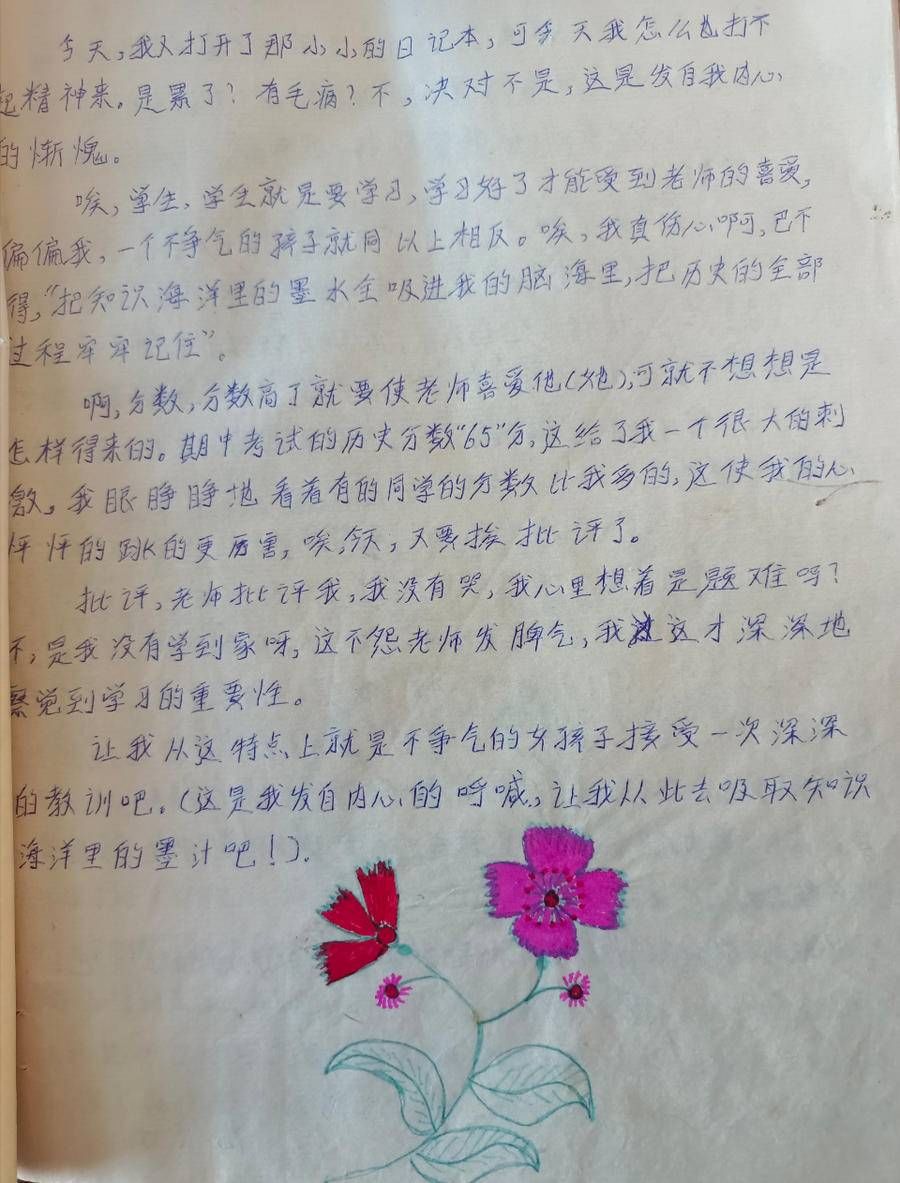 今天,我又打开了那小小的日记本,可今天我怎么也打不
起精神来。是累了?有毛病?不,决对不是,这是发自我内心
的惭愧。
唉,学生,学生就是要学习,学习好了才能受到老师的喜爱,
偏偏我,一个不争气的孩子就同以上相反。唉,我真伤心啊,巴不
得,“把知识海洋里的墨水全吸进我的脑海里,把历史的全部
过程牢牢记住”。
啊,分数,分数高了就要使老师喜爱他(她),可就不想想是
怎样得来的。期中考试的历史分数“65”分,这给了我一个很大的刺
激。我眼睁睁地看着有的同学的分数比我多的,这使我的心
怦怦的跳的更厉害,唉,今天,又要挨批评了。
批评,老师批评我,我没有哭,我心里想着是题难吗?
不,是我没有学到家呀,这不怨老师发脾气,我这才深深地
察觉到学习的重要性。
让我从这特点上就是不争气的女孩子接受一次深深
的教训吧。(这是我发自内心的呼喊,让我从此去吸取知识
海洋里的墨汁吧!).